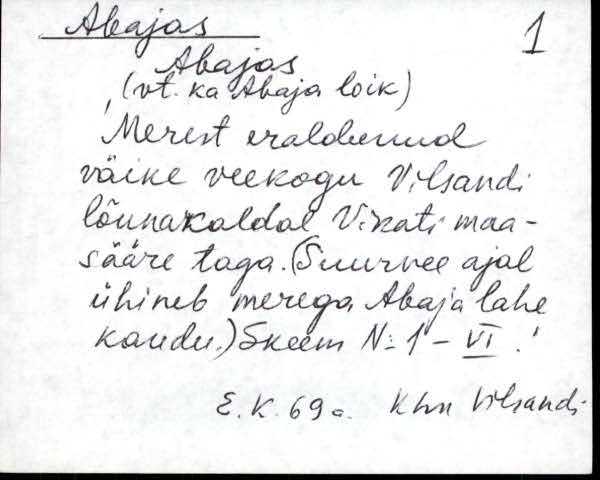 Abajas
1
Abajas
(vt. ka Abaja loik)
Merest eraldunud
väike veekogu Vilsandi
lõunakaldal Vikati maa-
sääre taga. (Suurvee ajal
ühineb merega Abaja lahe
kaudu.) Skeem N: 1 - VI.
E. K. 69 a. Khn Vilsandi